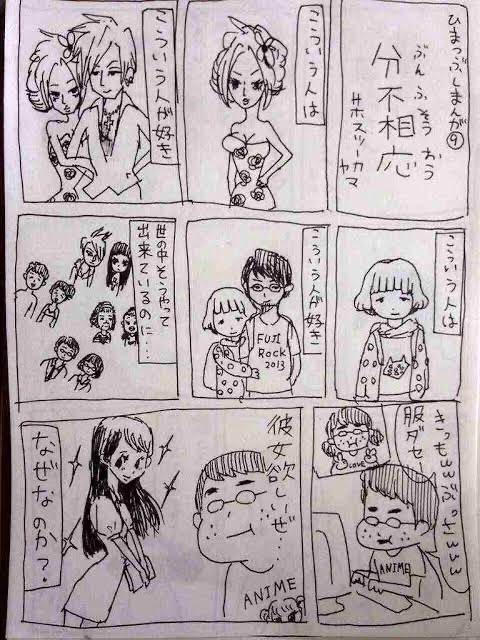 ひまつぶしまんが⑨
ぶんふそうおう
分不相応
サホスツーカヤマ
こういう人は
こういう人が好き
こういう人は
こういう人が好き
FUJI
Rock
2013
世の中そうやって
出来ているのに…
きっもwwぶっさwww
服ダセー
Love
ANIME
彼女欲しいぜ…
ANIME
なぜなのか?